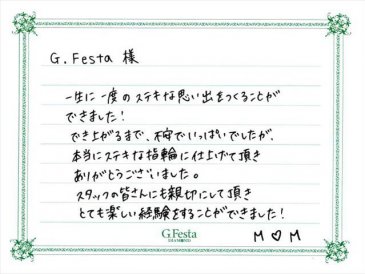 G.Festa 様
一生に一度のステキな思い出をつくることが
できました!
でき上がるまで、不安でいっぱいでしたが、
本当にステキな指輪に仕上げて頂き
ありがとうございました。
スタッフの皆さんにも親切にして頂き
とても楽しい経験をすることができました!
G.Festa
DIAMOND
M♡M